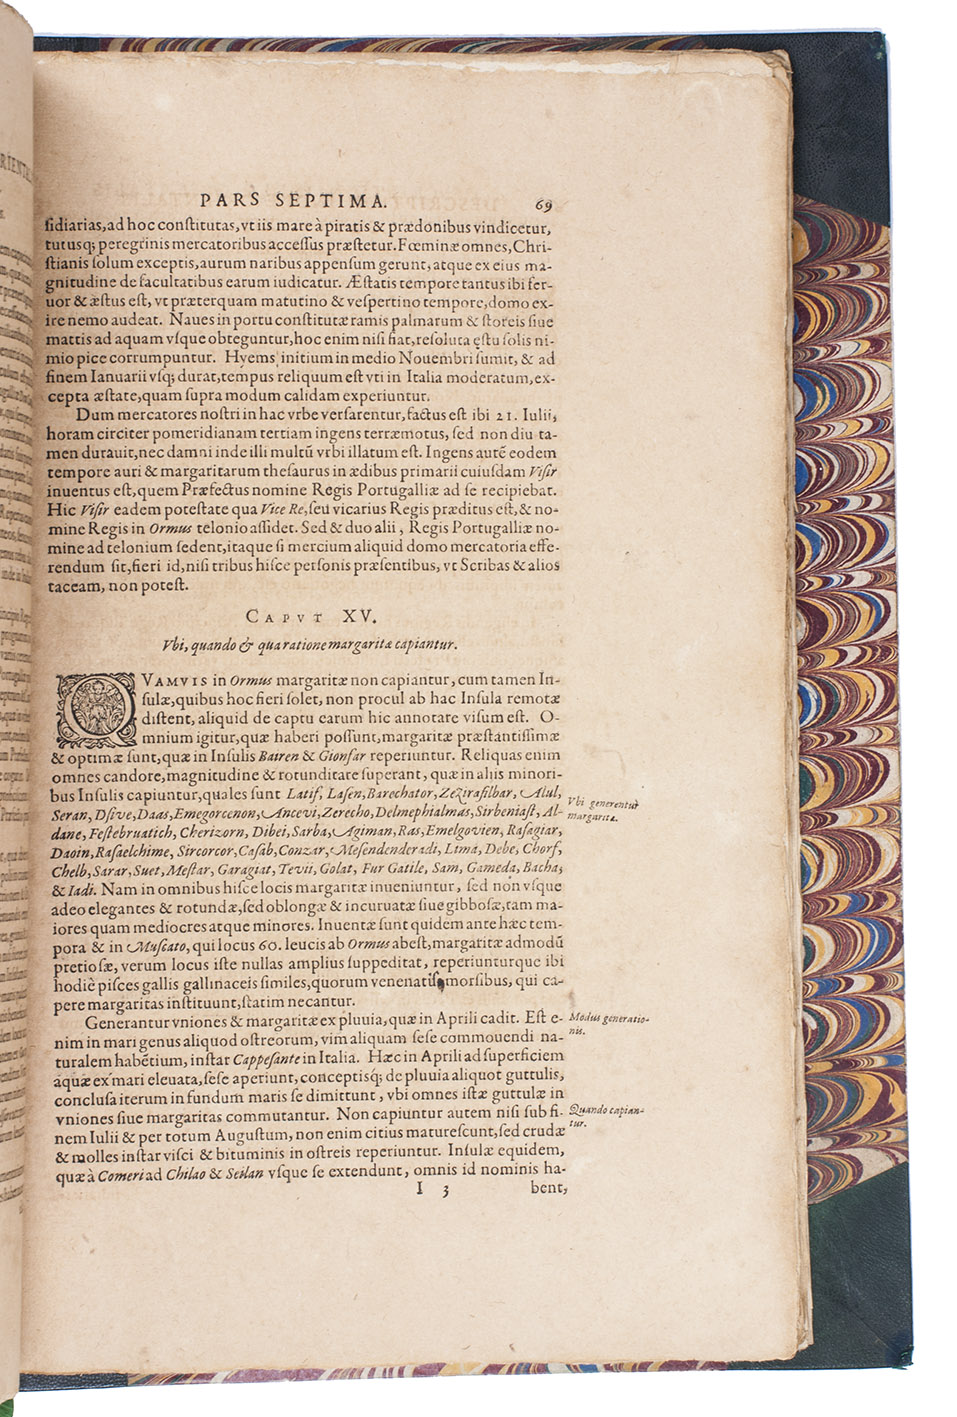 PARS SEPTIMA. 69
ſidiarias, ad hoc conſtitutas, vt iis mare à piratis & prædonibus vindicetur,
tutusq; peregrinis mercatoribus acceſſus præſtetur. Fœminæ omnes, Chri-
ſtianis ſolum exceptis, aurum naribus appenſum gerunt, atque ex eius ma-
gnitudine de facultatibus earum iudicatur. Æſtatis tempore tantus ibi fer-
uor & æſtus eſt, vt præterquam matutino & veſpertino tempore, domo ex-
ire nemo audeat. Naues in portu conſtitutæ ramis palmarum & ſtoreis ſiue
mattis ad aquam vſque obteguntur, hoc enim niſi fiat, reſoluta ęſtu ſolis ni-
mio pice corrumpuntur. Hyems initium in medio Nouembri ſumit, & ad
finem Ianuarii vſq; durat, tempus reliquum eſt vti in Italia moderatum, ex-
cepta æſtate, quam ſupra modum calidam experiuntur.
Dum mercatores noſtri in hac vrbe verſarentur, factus eſt ibi 21. Iulii,
horam circiter pomeridianam tertiam ingens terræmotus, ſed non diu ta-
men durauit, nec damni inde illi multũ vrbi illatum eſt. Ingens autẽ eodem
tempore auri & margaritarum theſaurus in ædibus primarii cuiuſdam Viſir
inuentus eſt, quem Præfectus nomine Regis Portugalliæ ad ſe recipiebat.
Hic Viſir eadem poteſtate qua Vice Re, ſeu vicarius Regis præditus eſt, & no-
mine Regis in Ormus telonio aſſidet. Sed & duo alii, Regis Portugalliæ no-
mine ad telonium ſedent, itaque ſi mercium aliquid domo mercatoria effe-
rendum ſit, fieri id, niſi tribus hiſce perſonis præſentibus, vt Scribas & alios
taceam, non poteſt.
CAPVT XV.
Vbi, quando & qua ratione margaritæ capiantur.
QVAMVIS in Ormus margaritæ non capiantur, cum tamen In-
ſulæ, quibus hoc fieri ſolet, non procul ab hac Inſula remotæ
diſtent, aliquid de captu earum hic annotare viſum eſt. O-
mnium igitur, quæ haberi poſſunt, margaritæ præſtantiſſimæ
& optimæ ſunt, quæ in Inſulis Bairen & Gionfar reperiuntur. Reliquas enim
omnes candore, magnitudine & rotunditate ſuperant, quæ in aliis minori-
bus Inſulis capiuntur, quales ſunt Latif, Laſen, Barechator, Zezirafilbar, Alul,
Seran, Dſive, Daas, Emegorcenon, Ancevi, Zerecho, Delmephialmas, Sirbeniaſt, Al-
dane, Feſtebruatich, Cherizorn, Dibei, Sarba, Agiman, Ras, Emelgovien, Raſagiar,
Daoin, Raſaelchime, Sircorcor, Caſab, Conzar, Meſendenderadi, Lima, Debe, Chorf,
Chelb, Sarar, Suet, Meſtar, Garagiat, Tevii, Golat, Fur Gatile, Sam, Gameda, Bacha,
& Iadi. Nam in omnibus hiſce locis margaritæ inueniuntur, ſed non vſque
adeo elegantes & rotundæ, ſed oblongæ & incuruatæ ſiue gibboſæ, tam ma-
iores quam mediocres atque minores. Inuentæ ſunt quidem ante hæc tem-
pora & in Muſcato, qui locus 60. leucis ab Ormus abeſt, margaritæ admodũ
pretioſæ, verum locus iſte nullas amplius ſuppeditat, reperiunturque ibi
hodiè piſces gallis gallinaceis ſimiles, quorum venenatis morſibus, qui ca-
pere margaritas inſtituunt, ſtatim necantur.
Generantur vniones & margaritæ ex pluuia, quæ in Aprili cadit. Eſt e-
nim in mari genus aliquod oſtreorum, vim aliquam ſeſe commouendi na-
turalem habẽtium, inſtar Cappeſante in Italia. Hæc in Aprili ad ſuperficiem
aquæ ex mari eleuata, ſeſe aperiunt, conceptisq; de pluuia aliquot guttulis,
concluſa iterum in fundum maris ſe dimittunt, vbi omnes iſtæ guttulæ in
vniones ſiue margaritas commutantur. Non capiuntur autem niſi ſub fi-
nem Iulii & per totum Auguſtum, non enim citius matureſcunt, ſed crudæ
& molles inſtar viſci & bituminis in oſtreis reperiuntur. Inſulæ equidem,
quæ à Comeri ad Chilao & Seilan vſque ſe extendunt, omnis id nominis ha-
I 3 bent,
Vbi generentur
margaritæ.
Modus generatio-
nis.
Quando capian-
tur.